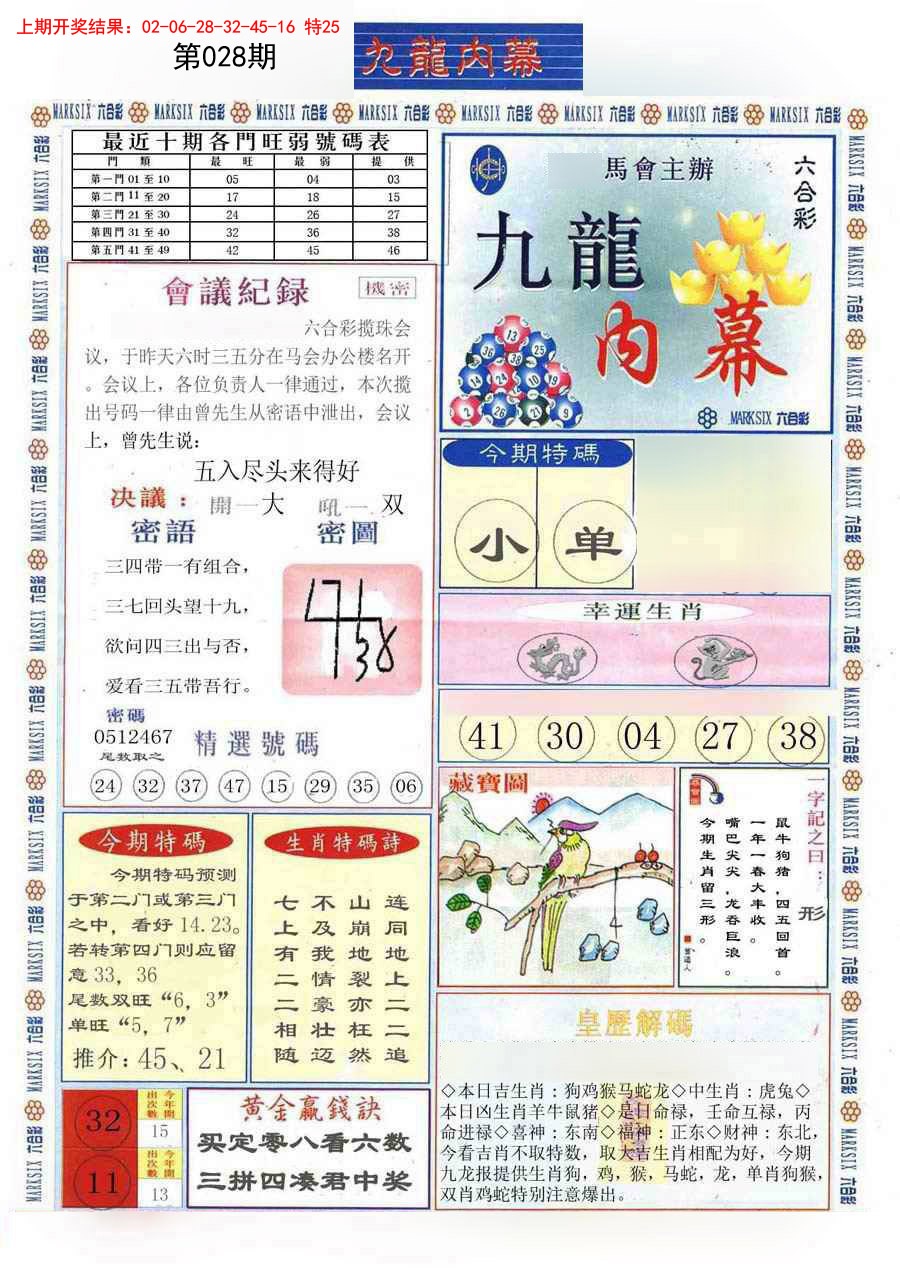 上期开奖结果：02-06-28-32-45-16 特25
第028期
九龍内幕
MARKSIX 六合彩
最近十期各門旺弱號碼表
門 類 最 旺 最 弱 提 供
第一門 01 至 10 05 04 03
第二門 11 至 20 17 18 15
第三門 21 至 30 24 26 27
第四門 31 至 40 32 36 38
第五門 41 至 49 42 45 46
馬會主辦
六合彩
九龍
内幕
13
36 38 25
14 24 10 19
2 26 21 9
MARKSIX 六合彩
會議紀録
機密
六合彩搅珠会
议，于昨天六时三五分在马会办公楼名开
。会议上，各位负责人一律通过，本次搅
出号码一律由曾先生从密语中泄出，会议
上，曾先生说：
五入尽头来得好
决議：開一大 吼一 双
密語 密圖
三四带一有组合，
三七回头望十九，
欲问四三出与否，
爱看三五带吾行。
密碼
0512467
尾数取之
精選號碼
24 32 37 47 15 29 35 06
今期特碼
小 单
幸運生肖
41 30 04 27 38
藏寶圖
一字記之曰：
形
鼠牛狗猪，四五回首。
一年一春大丰收。
嘴巴尖尖，龙吞巨浪。
今期生肖留三形。
今期特碼
今期特码预测
于第二门或第三门
之中，看好 14.23。
若转第四门则应留
意 33，36
尾数双旺“6，3”
单旺“5，7”
推介：45、21
生肖特碼詩
连同地上二二追
山崩地裂亦枉然
不及我情豪壮迈
七上有二二相随
皇歷解碼
◇本日吉生肖：狗鸡猴马蛇龙◇中生肖：虎兔◇
本日凶生肖羊牛鼠猪◇是日命禄，壬命互禄，丙
命进禄◇喜神：东南◇福神：正东◇财神：东北，
今看吉肖不取特数，取大吉生肖相配为好，今期
九龙报提供生肖狗，鸡，猴，马蛇，龙，单肖狗猴，
双肖鸡蛇特别注意爆出。
32
今年開出次數
15
11
今年開出次數
13
黄金赢錢訣
买定零八看六数
三拼四凑君中奖